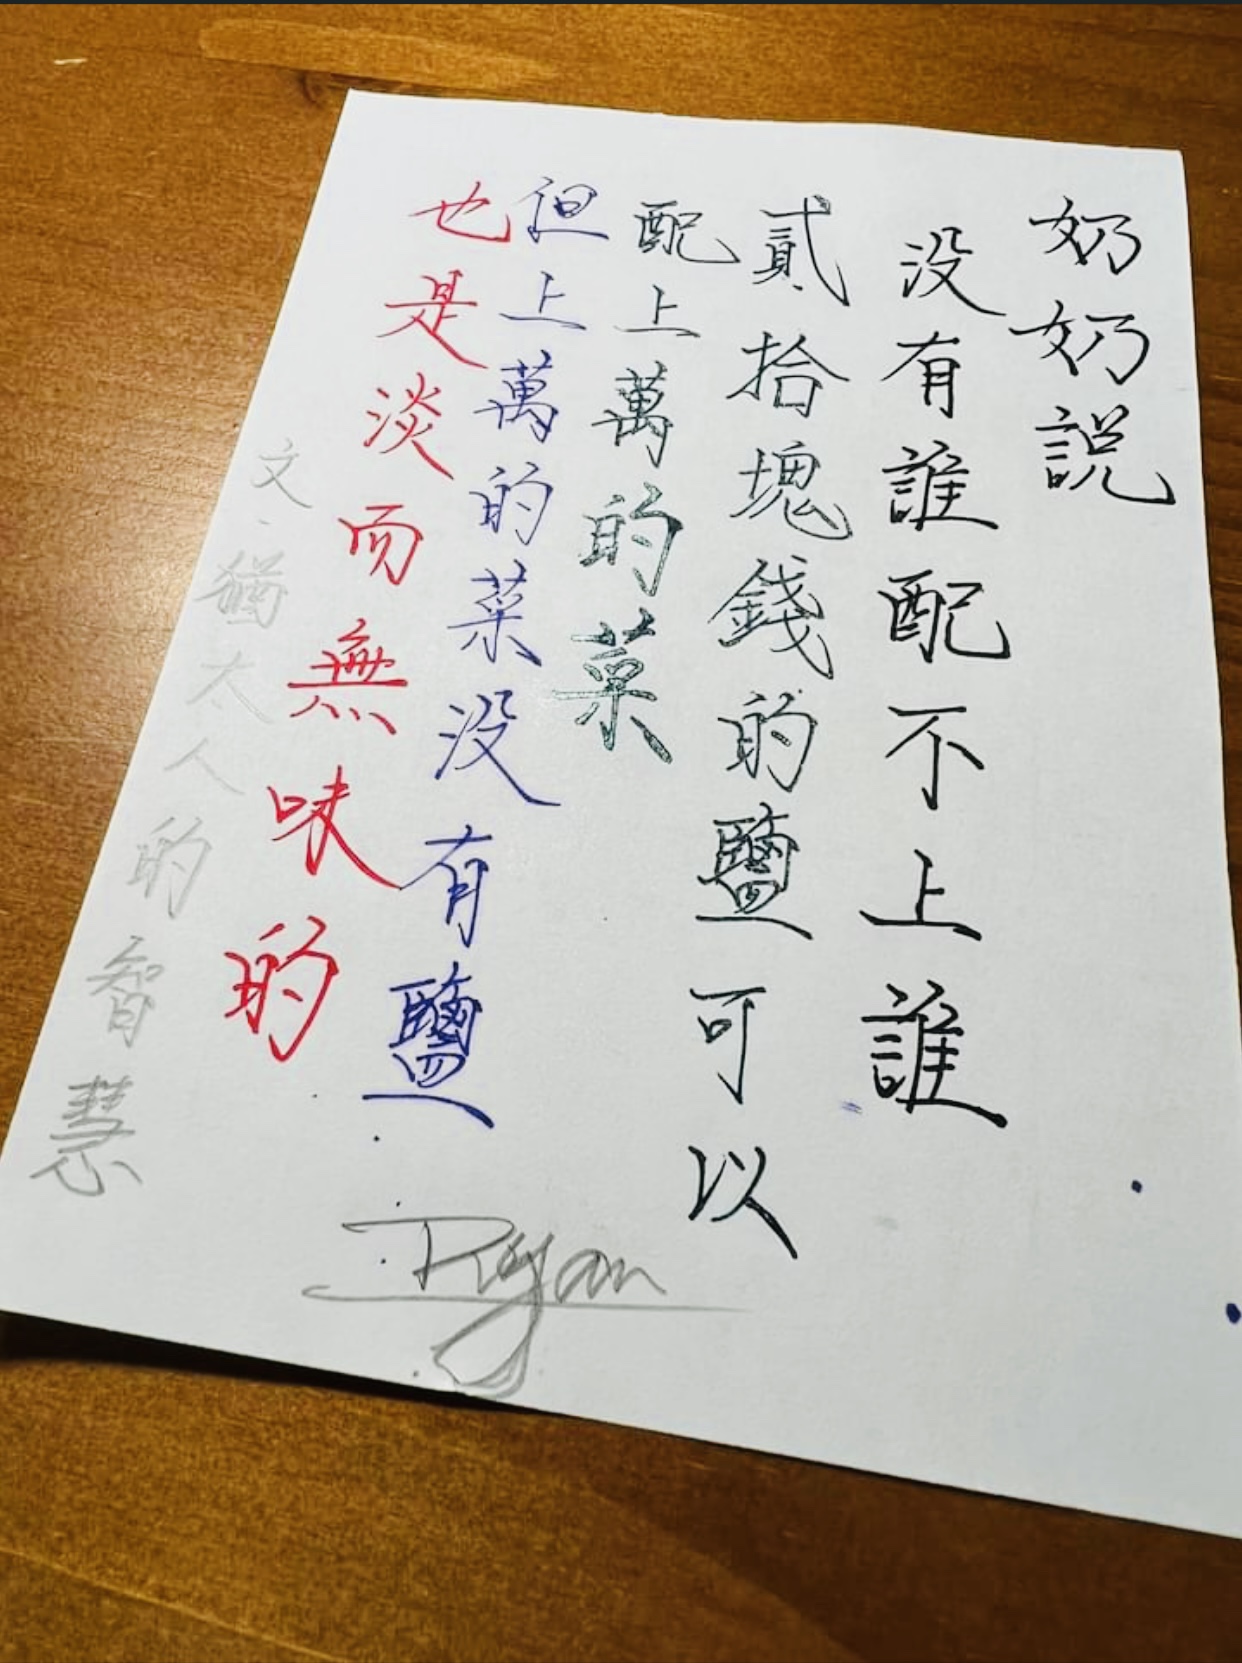 奶奶説
没有誰配不上誰
貳拾塊錢的鹽可以
配上萬的菜
但上萬的菜没有鹽
也是淡而無味的
文·猶太人的智慧
Ryan